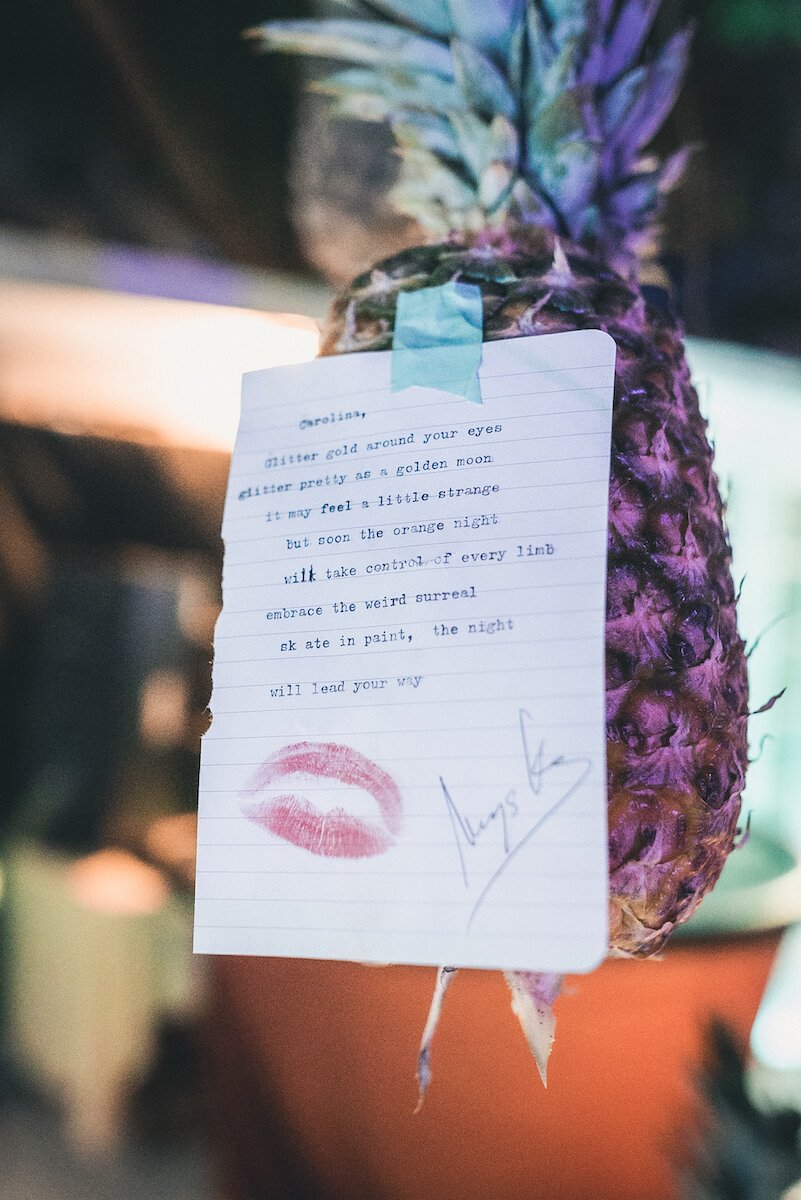 Carolina,
Glitter gold around your eyes
glitter pretty as a golden moon
it may feel a little strange
but soon the orange night
will take control of every limb
embrace the weird surreal
sk ate in paint, the night
will lead your way